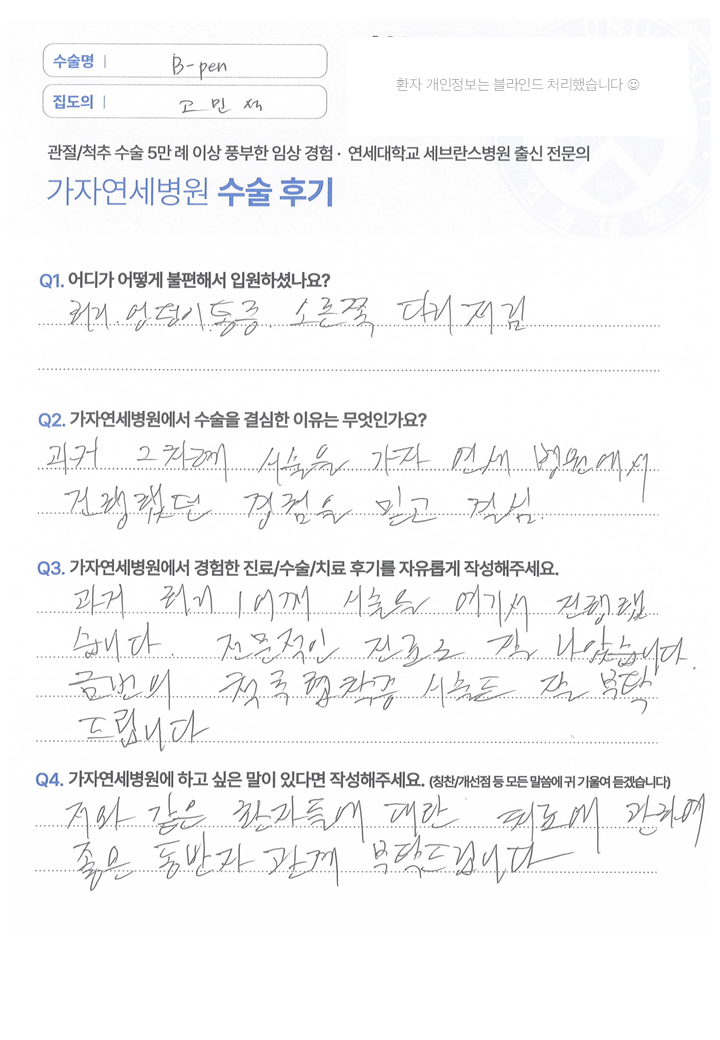 수술명 | B-pen
환자 개인정보는 블라인드 처리했습니다 ☺
집도의 | 고 민 석
관절/척추 수술 5만 례 이상 풍부한 임상 경험 · 연세대학교 세브란스병원 출신 전문의
가자연세병원 수술 후기
Q1. 어디가 어떻게 불편해서 입원하셨나요?
허리. 엉덩이 통증. 오른쪽 다리 저림
Q2. 가자연세병원에서 수술을 결심한 이유는 무엇인가요?
과거 2차례 시술을 가자 연세 병원에서
진행했던 경험을 믿고 결심.
Q3. 가자연세병원에서 경험한 진료/수술/치료 후기를 자유롭게 작성해주세요.
과거 허리 어깨 시술을 여기서 진행했
습니다. 전문적인 진료로 잘 나았습니다.
금번의 척추협착증 시술도 잘 부탁
드립니다
Q4. 가자연세병원에 하고 싶은 말이 있다면 작성해주세요. (칭찬/개선점 등 모든 말씀에 귀 기울여 듣겠습니다)
저와 같은 환자들에 대한 관리에
좋은 동반자 관계 부탁드립니다